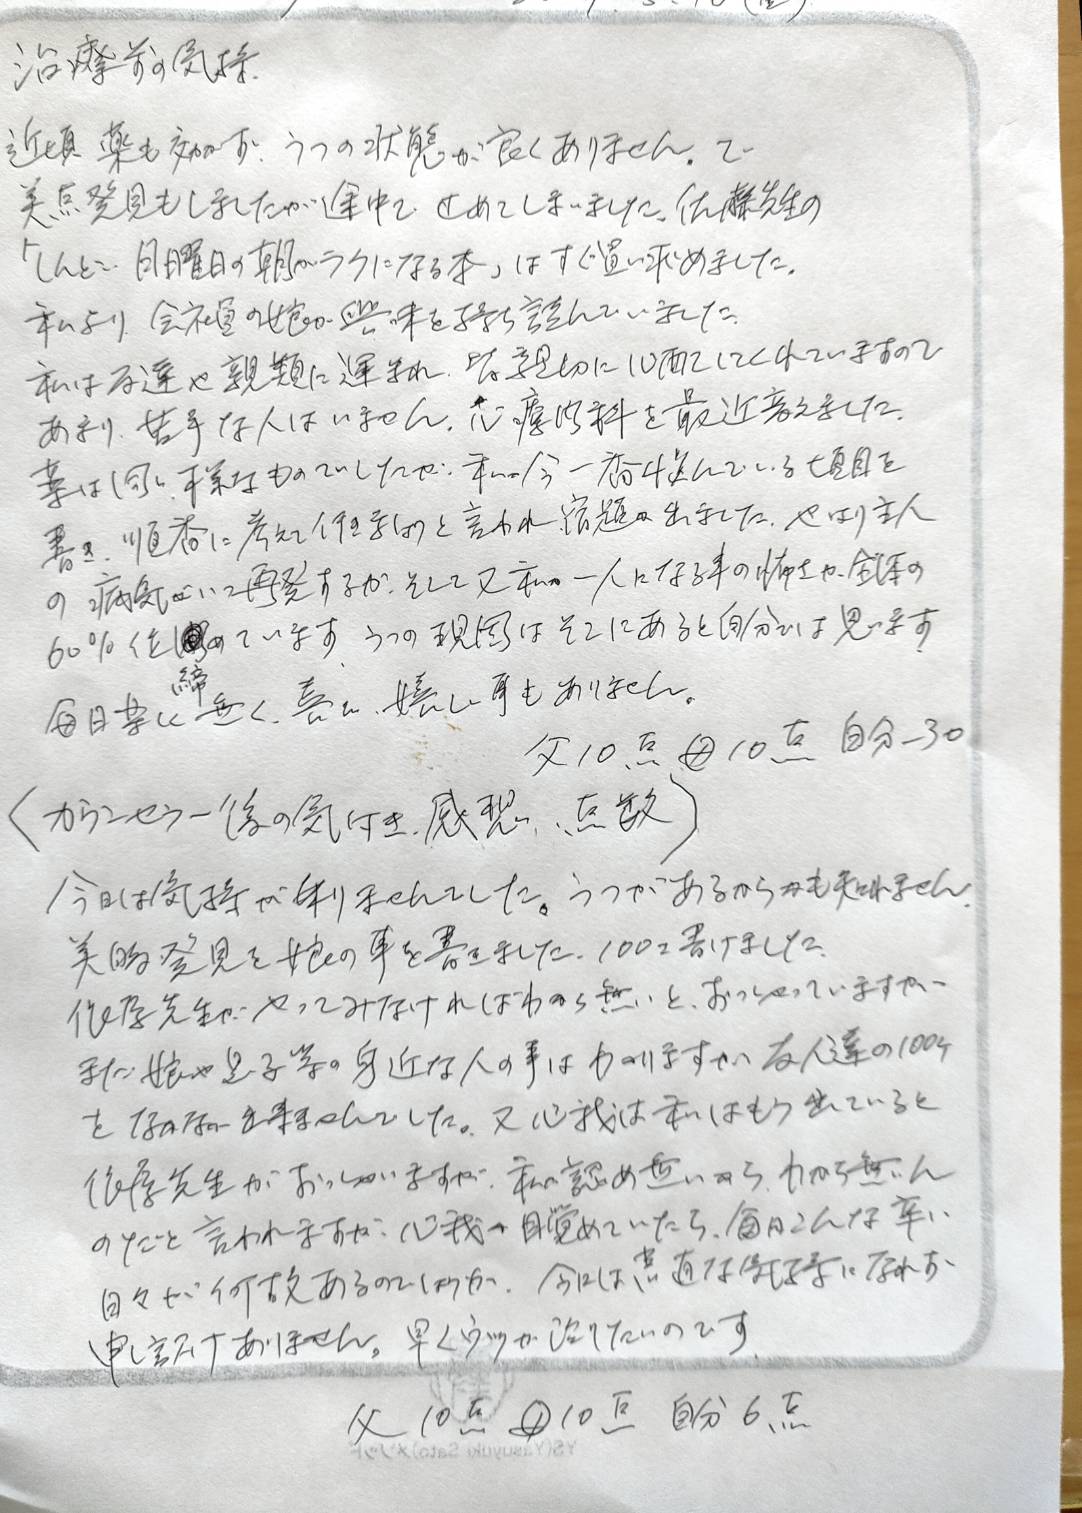 治療前の気持
近頃 薬も効かず、うつの状態が良くありません。で
美点発見もしましたが途中で 止めてしまいました。佐藤先生の
「しんどい月曜日の朝がラクになる本」はすぐ買い求めました。
私より 会社員の娘が興味を持ち読んでいました。
私は友達や親類に運まれ、皆親切に心配してくれていますので
あまり、苦手な人はいません。心療内科を最近変えました。
薬は同じ様なものでしたが、私が今一番悩んでいる項目を
書き、順番に考えて行きましょうと言われ宿題が出ました。やはり主人
の病気がいつ再発するか、そして又私が一人になる事の怖さが全体の
60%位 締めています。うつの原因はそこにあると自分では思います
毎日楽しく無く、喜び、嬉しい事もありません。
父10点 母10点 自分-30
(カウンセラー後の気付き、感想、点数)
今日は気持が乗りませんでした。うつがあるからかも知れません。
美点発見を娘の事を書きました。100コ書けました。
佐藤先生が やってみなければわから無いと、おっしゃっていますが
まだ娘や息子等の身近な人の事はわかりますが、友人達の100ケ
を なかなか出来ませんでした。又心我は私はもう出ていると
佐藤先生が おっしゃいますが、私が認め無いから、わから無いん
のだと言われますが、心我が目覚めていたら、毎日こんな辛い
日々が何故あるのでしょうか。今日は素直な気持になれず
申し訳けありません。早くウツが治りたいのです
父10点 母10点 自分6点
YS(Yasuyuki Sato)メソッド